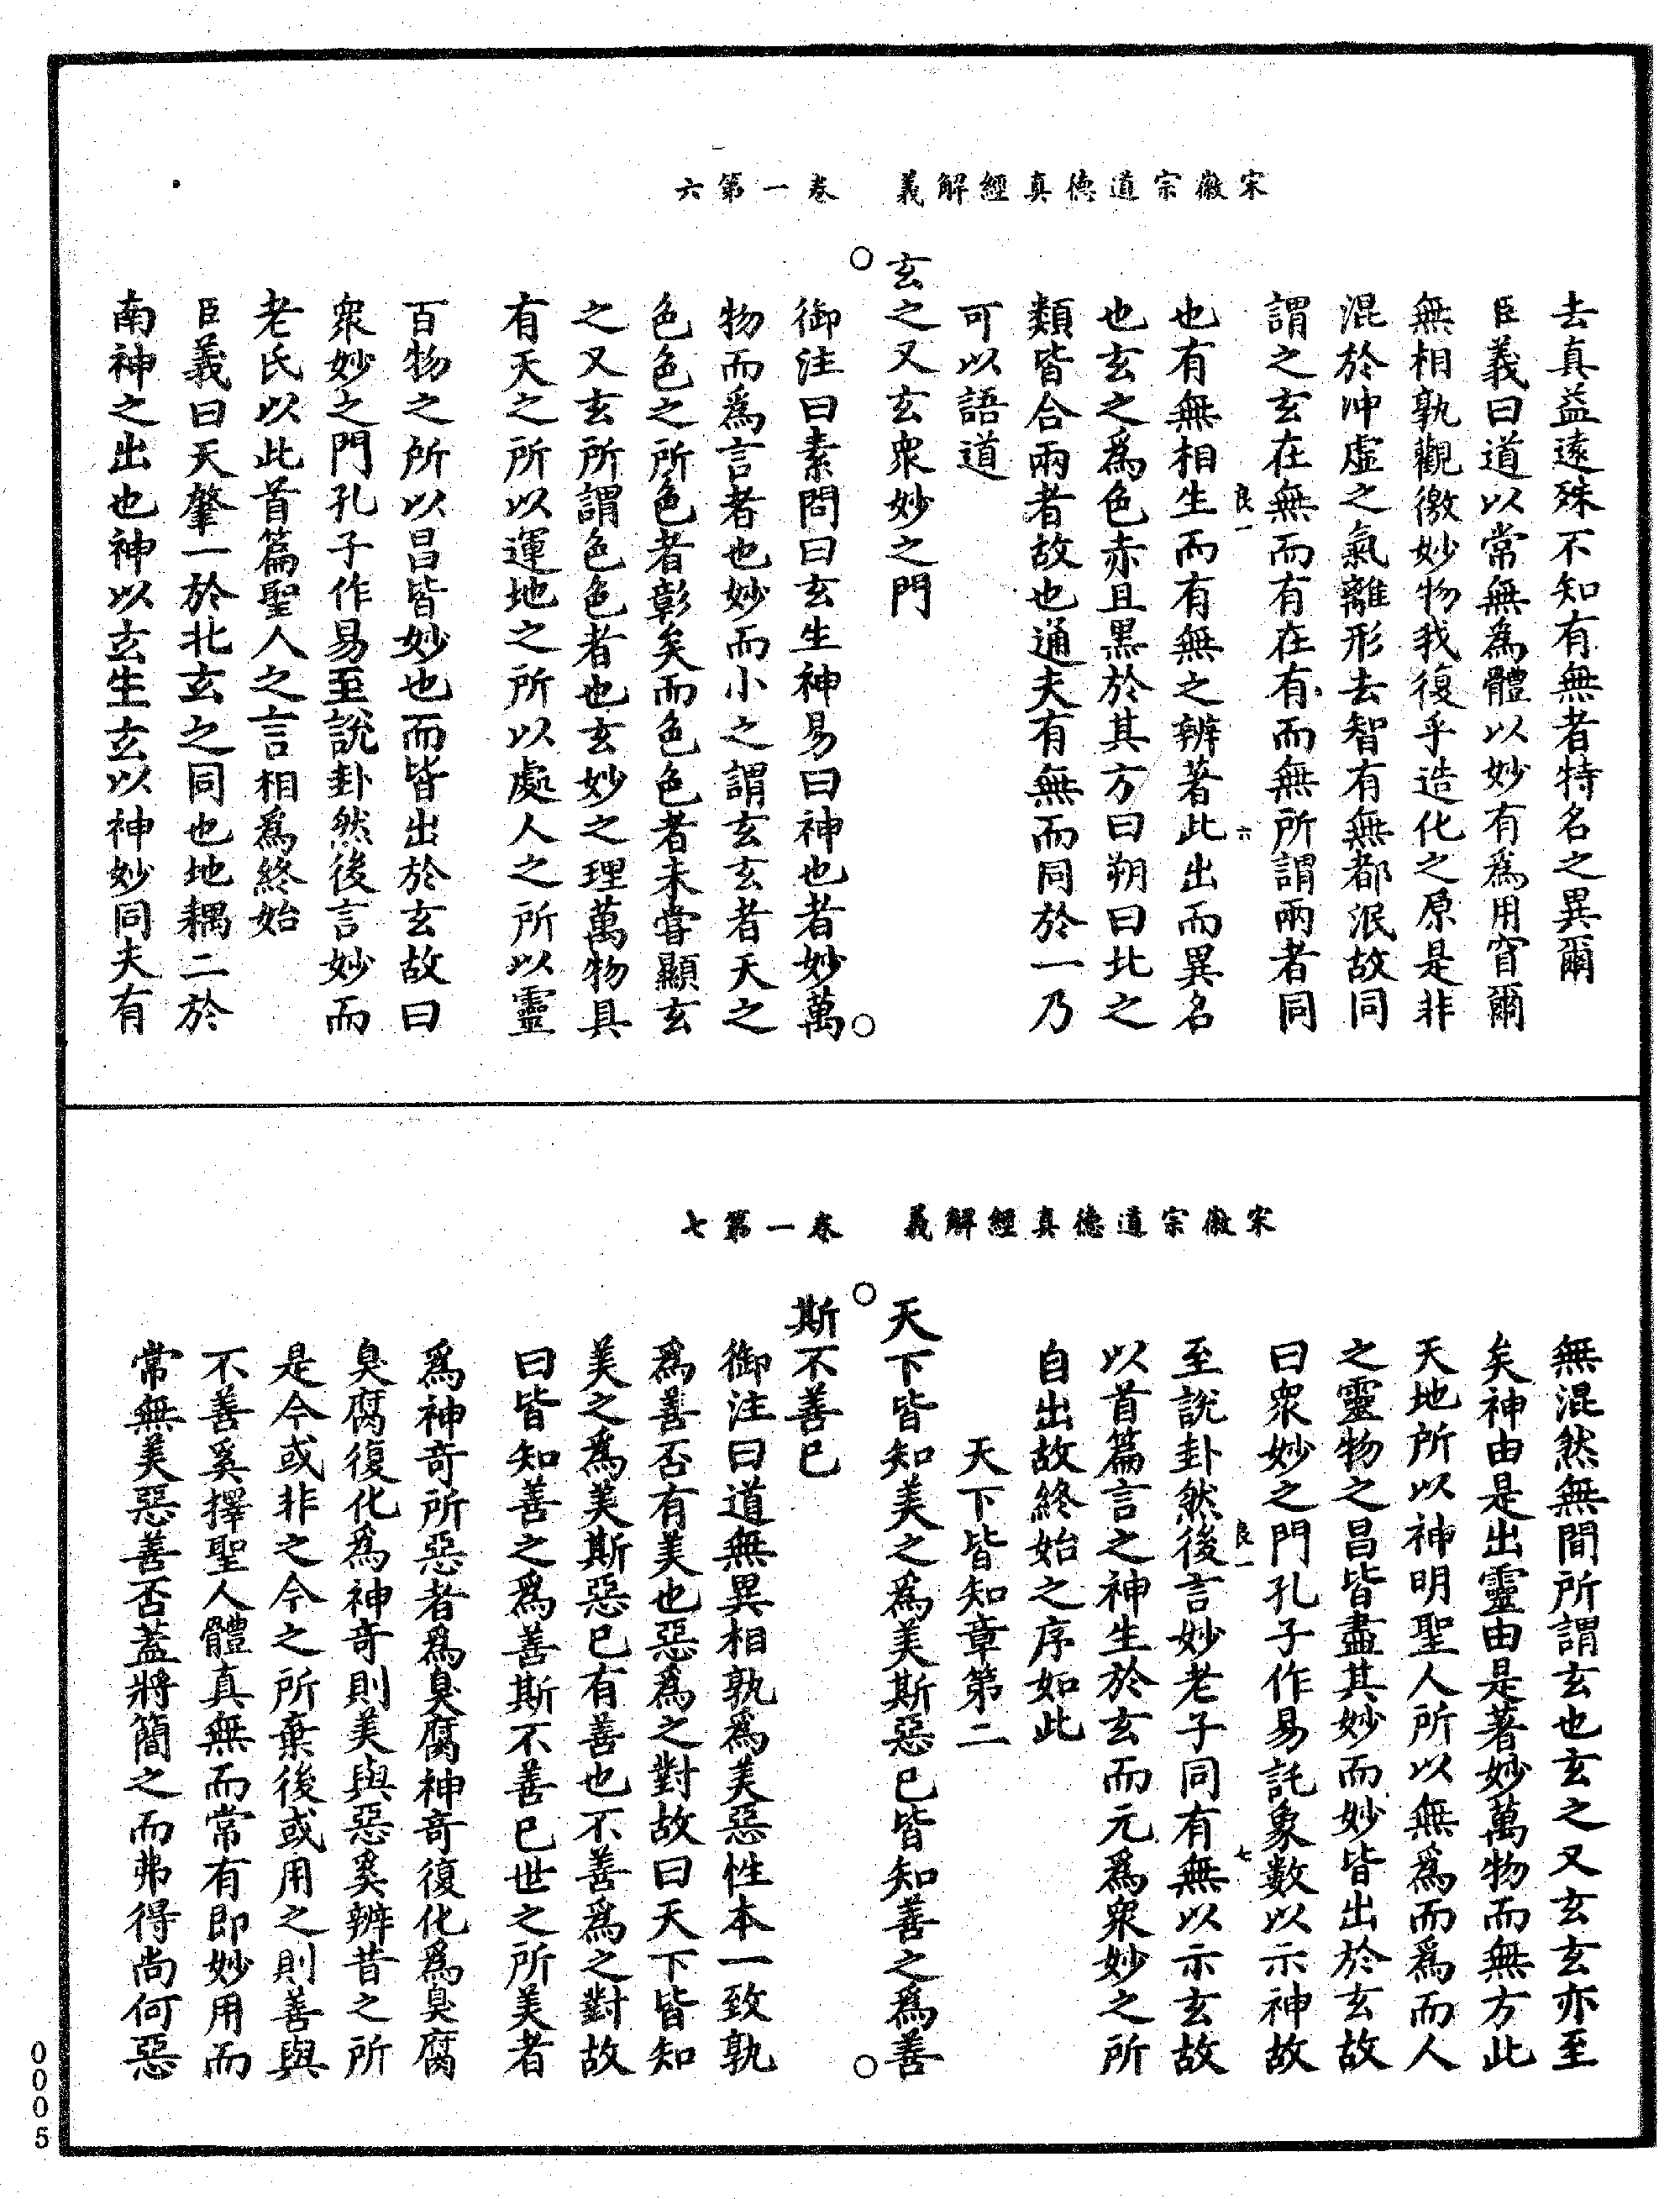 宋徽宗道德真經解義　卷一第六
去真益遠殊不知有無者特名之異爾
臣義曰道以常無為體以妙有爲用窅爾
無相孰觀徼妙物我復乎造化之原是非
混於沖虛之氣離形去智有無都泯故同
謂之玄在無而有在有而無所謂兩者同
良一　六
也有無相生而有有無之辨著此出而異名
也玄之爲色赤且黑於其方曰朔曰北之
類皆合兩者故也通夫有無而同於一乃
可以語道
玄之又玄衆妙之門
御注曰素問曰玄生神易曰神也者妙萬
物而爲言者也妙而小之謂玄玄者天之
色色之所色者彰矣而色色者未嘗顯玄
之又玄所謂色色者也玄妙之理萬物具
有天之所以運地之所以處人之所以靈
百物之所以昌皆妙也而皆出於玄故曰
衆妙之門孔子作易至說卦然後言妙而
老氏以此首篇聖人之言相爲終始
臣義曰天肇一於北玄之同也地耦二於
南神之出也神以玄生玄以神妙同夫有
宋徽宗道德真經解義　卷一第七
無混然無間所謂玄也玄之又玄玄亦至
矣神由是出靈由是著妙萬物而無方此
天地所以神明聖人所以無爲而爲而人
之靈物之昌皆盡其妙而妙皆出於玄故
曰衆妙之門孔子作易託象數以示神故
良一　七
至說卦然後言妙老子同有無以示玄故
以首篇言之神生於玄而元爲衆妙之所
自出故終始之序如此
天下皆知章第二
天下皆知美之爲美斯惡已皆知善之爲善
斯不善已
御注曰道無異相孰爲美惡性本一致孰
爲善否有美也惡爲之對故曰天下皆知
美之爲美斯惡已有善也不善爲之對故
曰皆知善之爲善斯不善已世之所美者
爲神奇所惡者爲臭腐神奇復化爲臭腐
臭腐復化爲神奇則美與惡奚辨昔之所
是今或非之今之所棄後或用之則善與
不善奚擇聖人體真無而常有即妙用而
常無美惡善否蓋將簡之而弗得尚何惡
0005